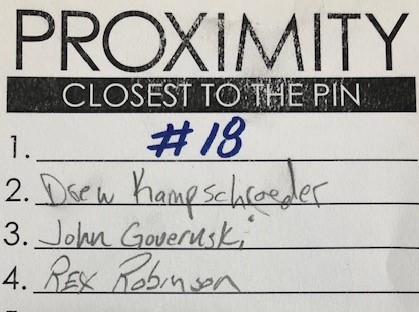 PROXIMITY
CLOSEST TO THE PIN
1. #18
2. Drew Kampschroeder
3. John Governski
4. Rex Robinson